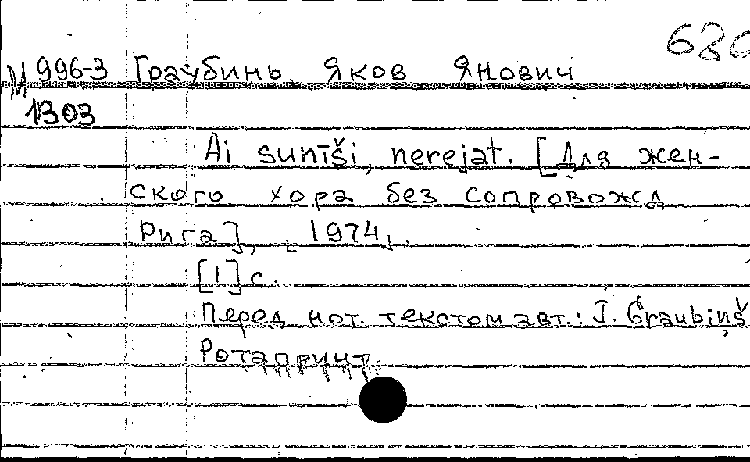 686
М 996-3 Граубинь Яков Янович
1303
Ai sunīši, nerejat. [Для жен-
ского хора без сопровожд
Рига], 1974.
[1] с.
Перед нот. текстом авт.: J. Graubiņš
Ротапринт